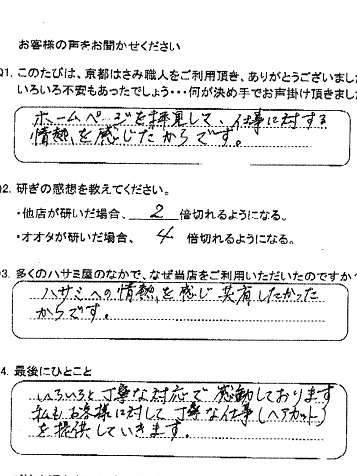 お客様の声をお聞かせください
Q1. このたびは、京都はさみ職人をご利用頂き、ありがとうございまし
いろいろ不安もあったでしょう・・・何が決め手でお声掛け頂きまし
ホームページを拝見して、仕事に対する
情熱を感じたからです。
Q2. 研ぎの感想を教えてください。
・他店が研いだ場合、 2 倍切れるようになる。
・オオタが研いだ場合、 4 倍切れるようになる。
Q3. 多くのハサミ屋のなかで、なぜ当店をご利用いただいたのですか?
ハサミへの情熱を感じ共有したかった
からです。
4. 最後にひとこと
いろいろと丁寧な対応で感動しております
私もお客様に対して丁寧な仕事(ヘアカット)
を提供していきます。